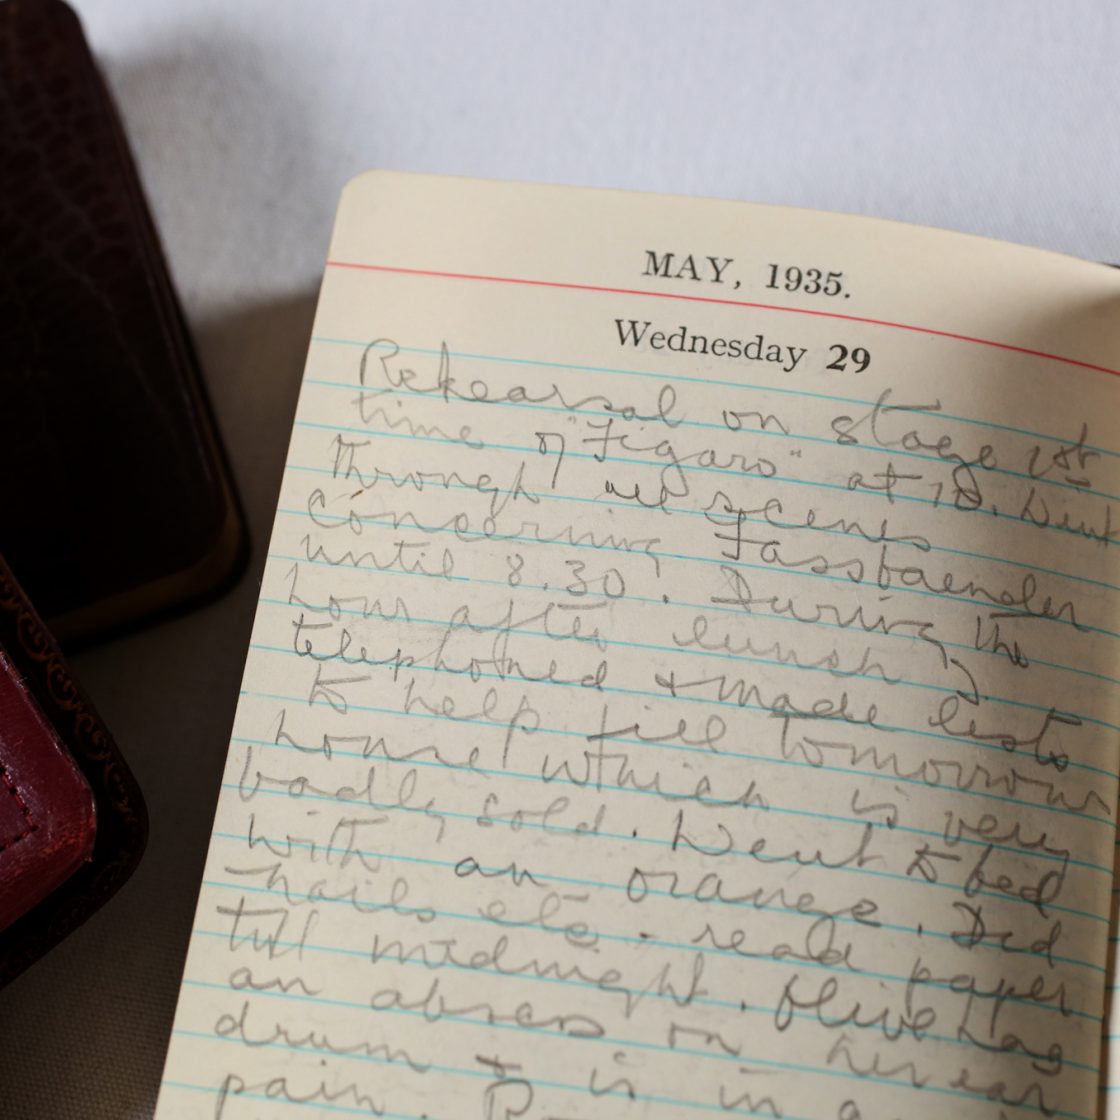 MAY, 1935.
Wednesday 29
Rehearsal on stage 1st
time of "Figaro" at 10. Went
through all scenes
concerning Fassbaender
until 8.30. During the
hour after lunch, I
telephoned & made lists
to help fill tomorrow's
house which is very
badly sold. Went to bed
with an orange. Did
nails etc. read paper
till midnight. Olive has
an absess on her ear
drum & is in
pain.